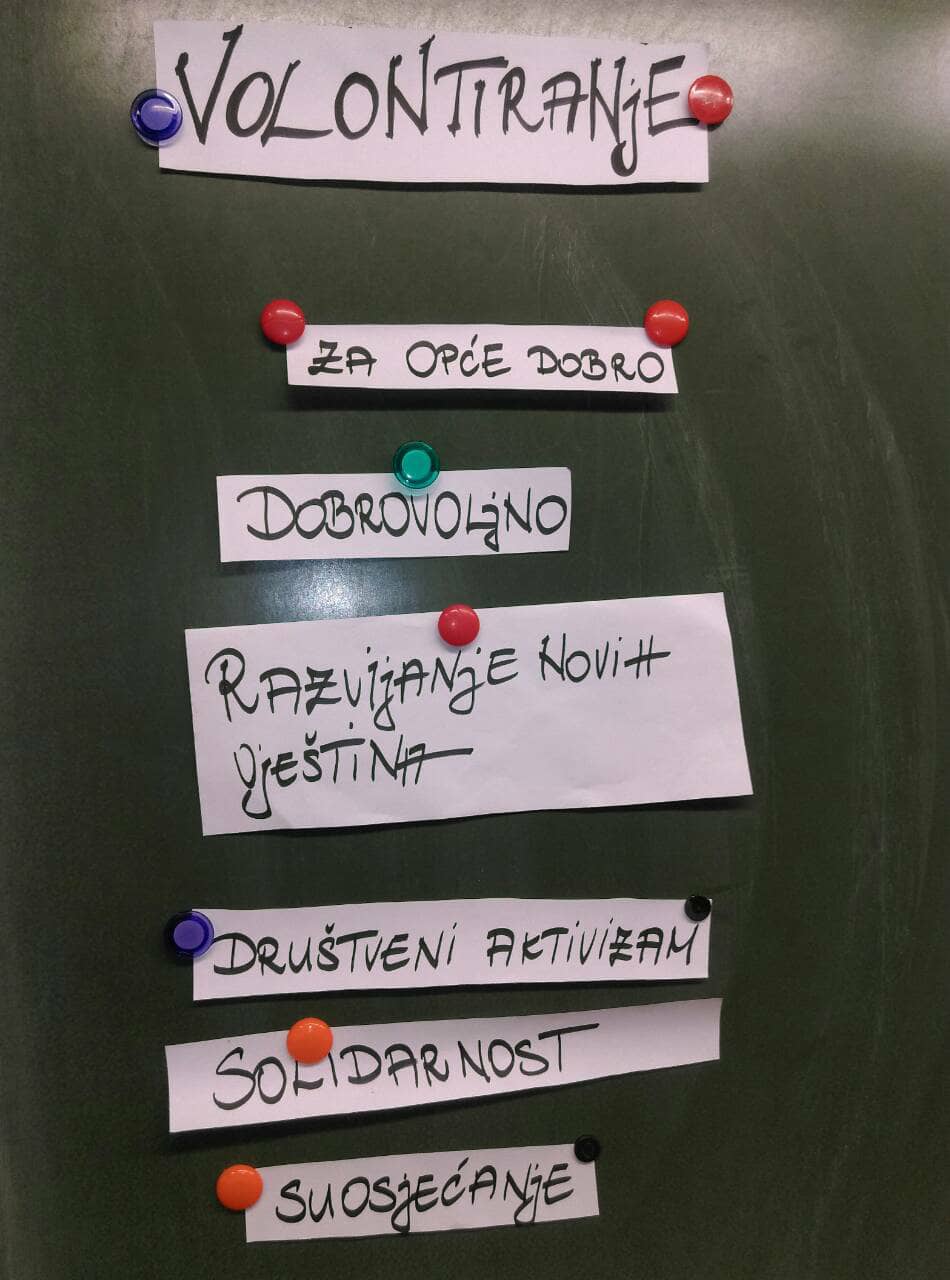 VOLONTIRANjE
ZA OPĆE DOBRO
DOBROVOLjNO
RAZVIjANjE NOVIH
VjEŠTINA
DRUŠTVENI AKTIVIZAM
SOLIDARNOST
SUOSjEĆANjE